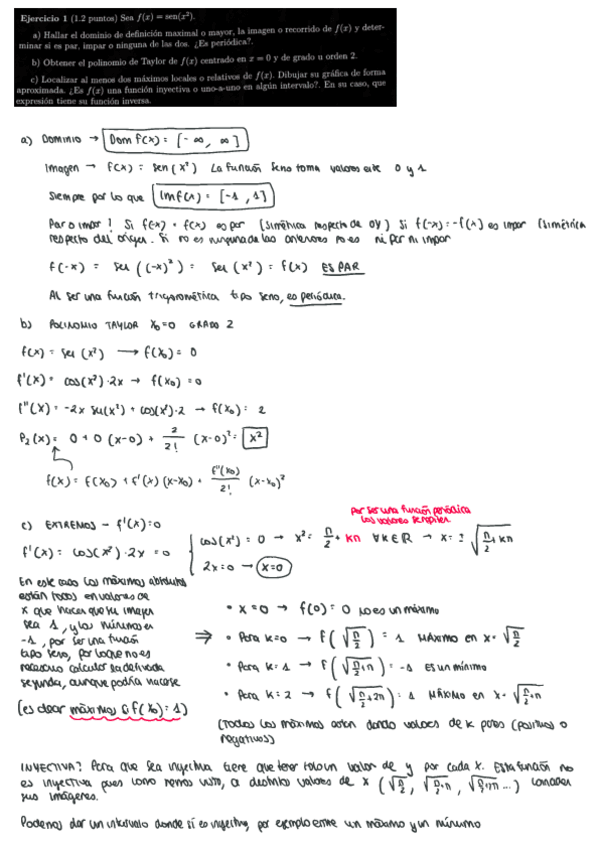 Ejercicio 1 (1.2 puntos) Sea f(x) = sen(x²).
a) Hallar el dominio de definición maximal o mayor, la imagen o recorrido de f(x) y deter-
minar si es par, impar o ninguna de las dos. ¿Es periódica?.
b) Obtener el polinomio de Taylor de f(x) centrado en x = 0 y de grado u orden 2.
c) Localizar al menos dos máximos locales o relativos de f(x). Dibujar su gráfica de forma
aproximada. ¿Es f(x) una función inyectiva o uno-a-uno en algún intervalo?. En su caso, que
expresión tiene su función inversa.
a) DOMINIO → Dom f(x) = [-∞, ∞]
Imagen → f(x) = sen(x²) La función seno toma valores entre 0 y 1
siempre por lo que Im f(x) = [-1, 1]
Par o impar? Si f(-x) = f(x) es par (simétrica respecto de OY) Si f(-x) = -f(x) es impar (simétrica
respecto del origen. Si no es ninguna de las anteriores no es ni par ni impar
f(-x) = sen((-x)²) = sen(x²) = f(x) ES PAR
Al ser una función trigonométrica tipo seno, es periódica.
b) POLINOMIO TAYLOR x₀=0 GRADO 2
f(x) = sen(x²) → f(x₀) = 0
f'(x) = cos(x²)·2x → f(x₀) = 0
f''(x) = -2x sen(x²) + cos(x²)·2 → f(x₀) = 2
P₂(x) = 0 + 0 (x-0) + 2/2! (x-0)² = x²
f(x) = f(x₀) + f'(x)(x-x₀) + f''(x₀)/2! (x-x₀)²
c) EXTREMOS - f'(x)=0
por ser una función periódica
los valores se repiten
f'(x) = cos(x²)·2x = 0
cos(x²) = 0 → x² = π/2 + kπ ∀k∈ℝ → x = ± √(π/2 + kπ)
2x=0 → x=0
En este caso los máximos absolutos
están todos en valores de
x que hacen que su imagen
sea 1, y los mínimos en
-1, por ser una función
tipo seno, por lo que no es
necesario calcular la derivada
segunda, aunque podría hacerse
(es decir máximos si f(x₀)=1)
• x=0 → f(0) = 0 no es un máximo
⇒ • Para k=0 → f(√(π/2)) = 1 MÁXIMO en x = √(π/2)
• Para k=1 → f(√(π/2+π)) = -1 es un mínimo
• Para k=2 → f(√(π/2+2π)) = 1 MÁXIMO en x = √(π/2+π)
(Todos los máximos están dando valores de k pares (positivos o
negativos))
INYECTIVA? Para que sea inyectiva tiene que tener solo un valor de y por cada x. Esta función no
es inyectiva pues como hemos visto, a distintos valores de x (√(π/2), √(π/2+π), √(π/2+π)...)
sus imágenes.
Podemos dar un intervalo donde si es inyectiva, por ejemplo entre un máximo y un mínimo